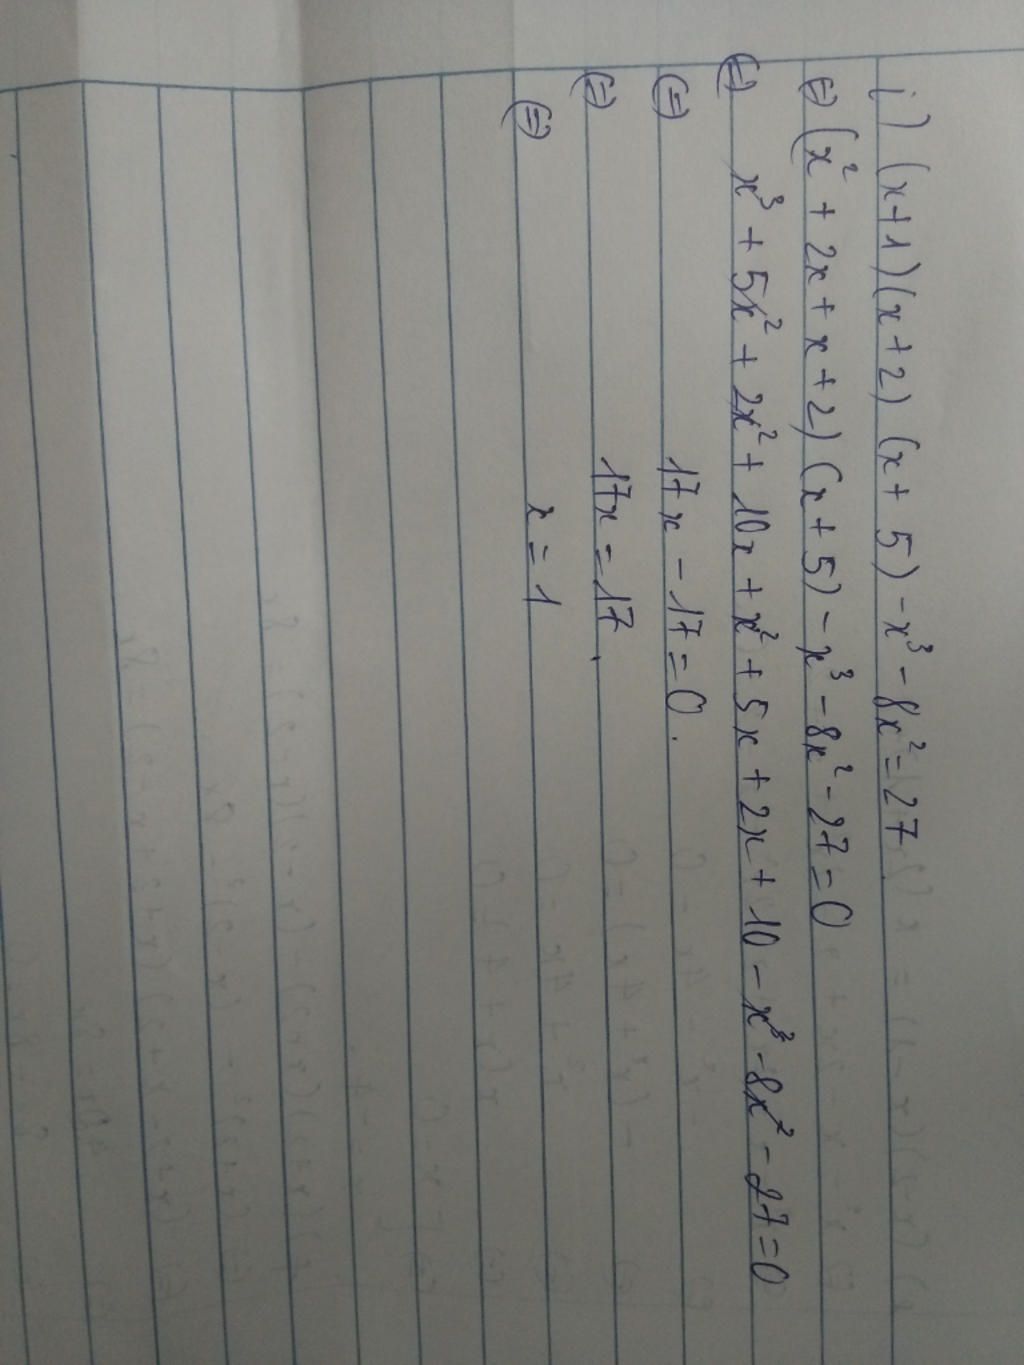 i) (x+1)(x+2)(x+5) - x³ - 8x² = 27
(=) (x² + 2x + x + 2)(x + 5) - x³ - 8x² - 27 = 0
(=) x³ + 5x² + 2x² + 10x + x² + 5x + 2x + 10 - x³ - 8x² - 27 = 0
(=) 17x - 17 = 0.
(=) 17x = 17.
(=) x = 1